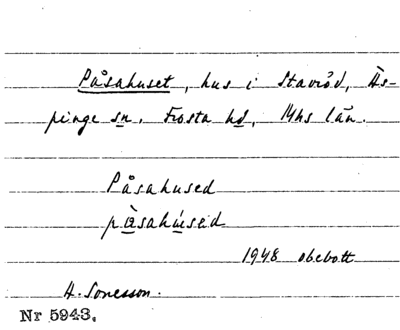 Påsahuset, hus i Stavröd, Äs-
pinge sn. Frosta hd, Mhs län.
Påsahused
påsahúsed
1948 obebott
H. Sonesson.
Nr 5943.